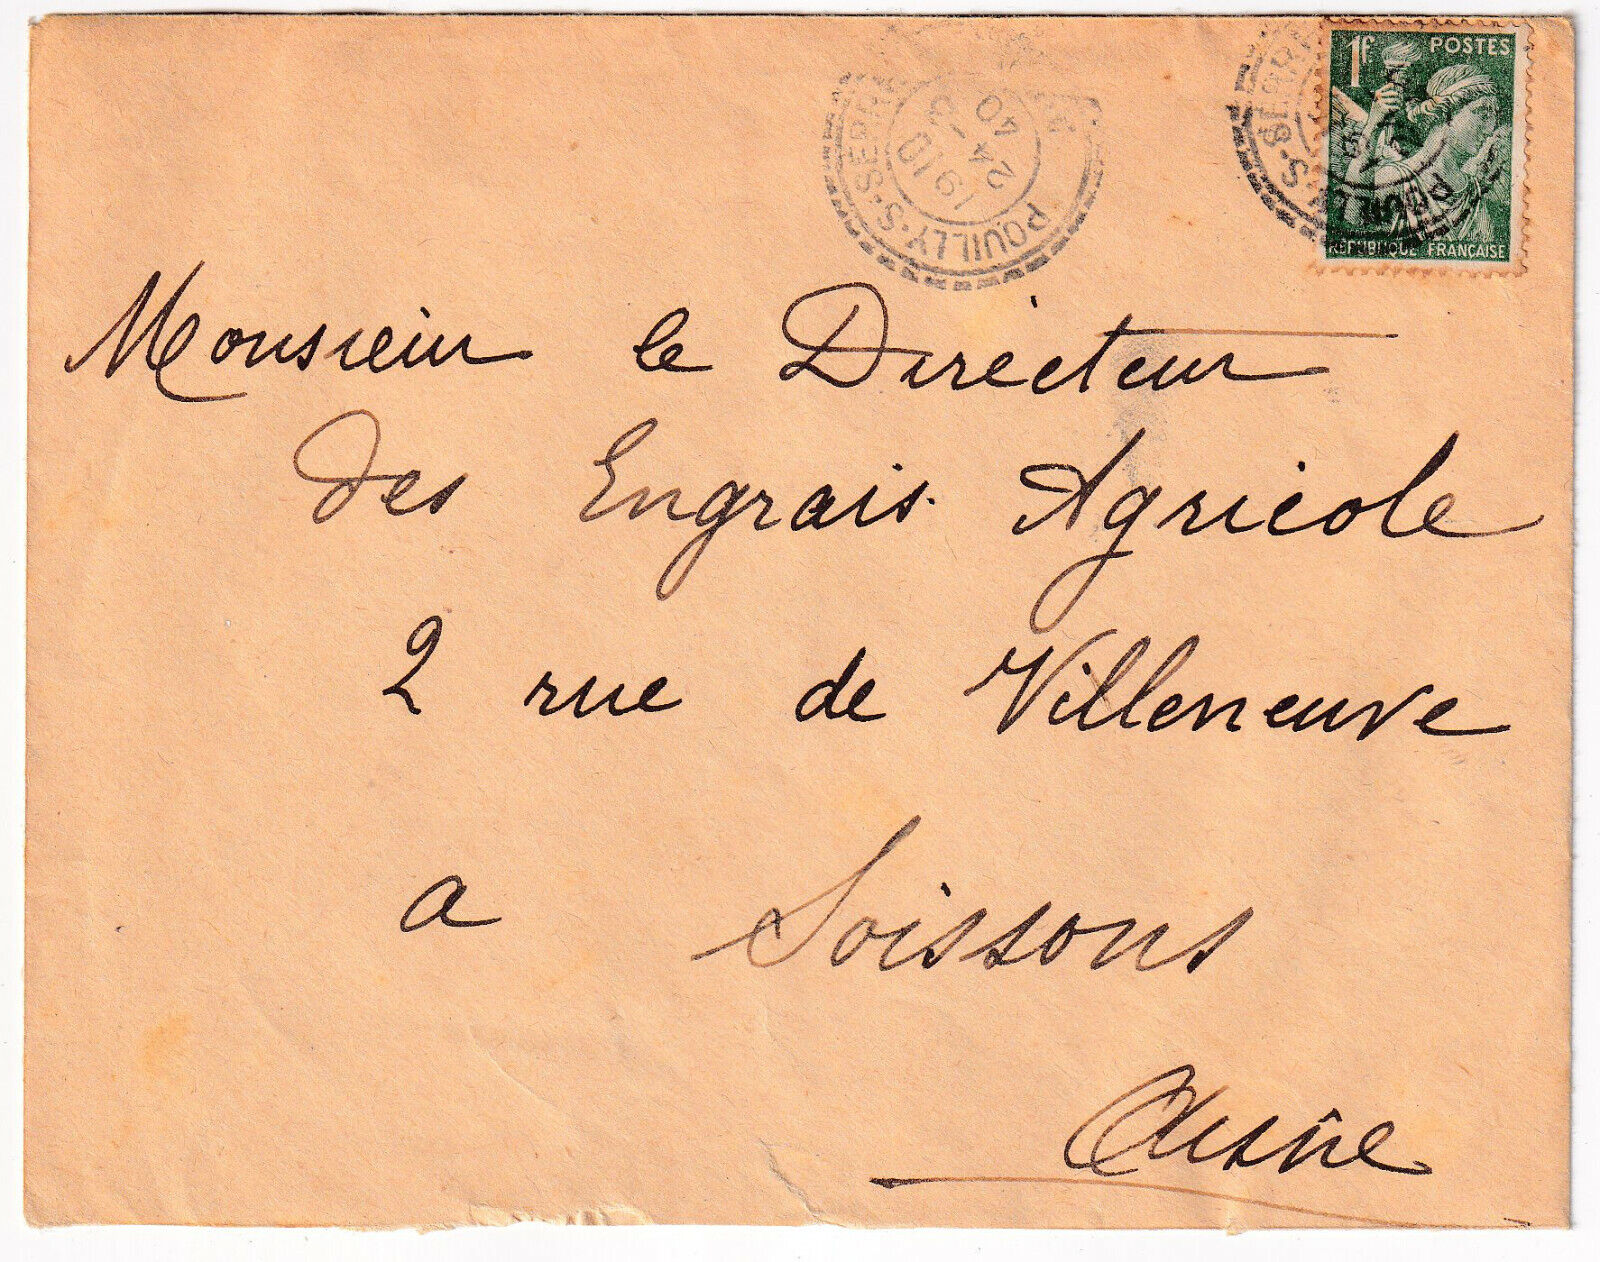 1F POSTES
REPUBLIQUE FRANÇAISE
POUILLY-S-SERRE
1910
24 - 3
40
POUILLY
S-SERRE
Monsieur le Directeur
des Engrais Agricole
2 rue de Villeneuve
a Soissons
Aisne